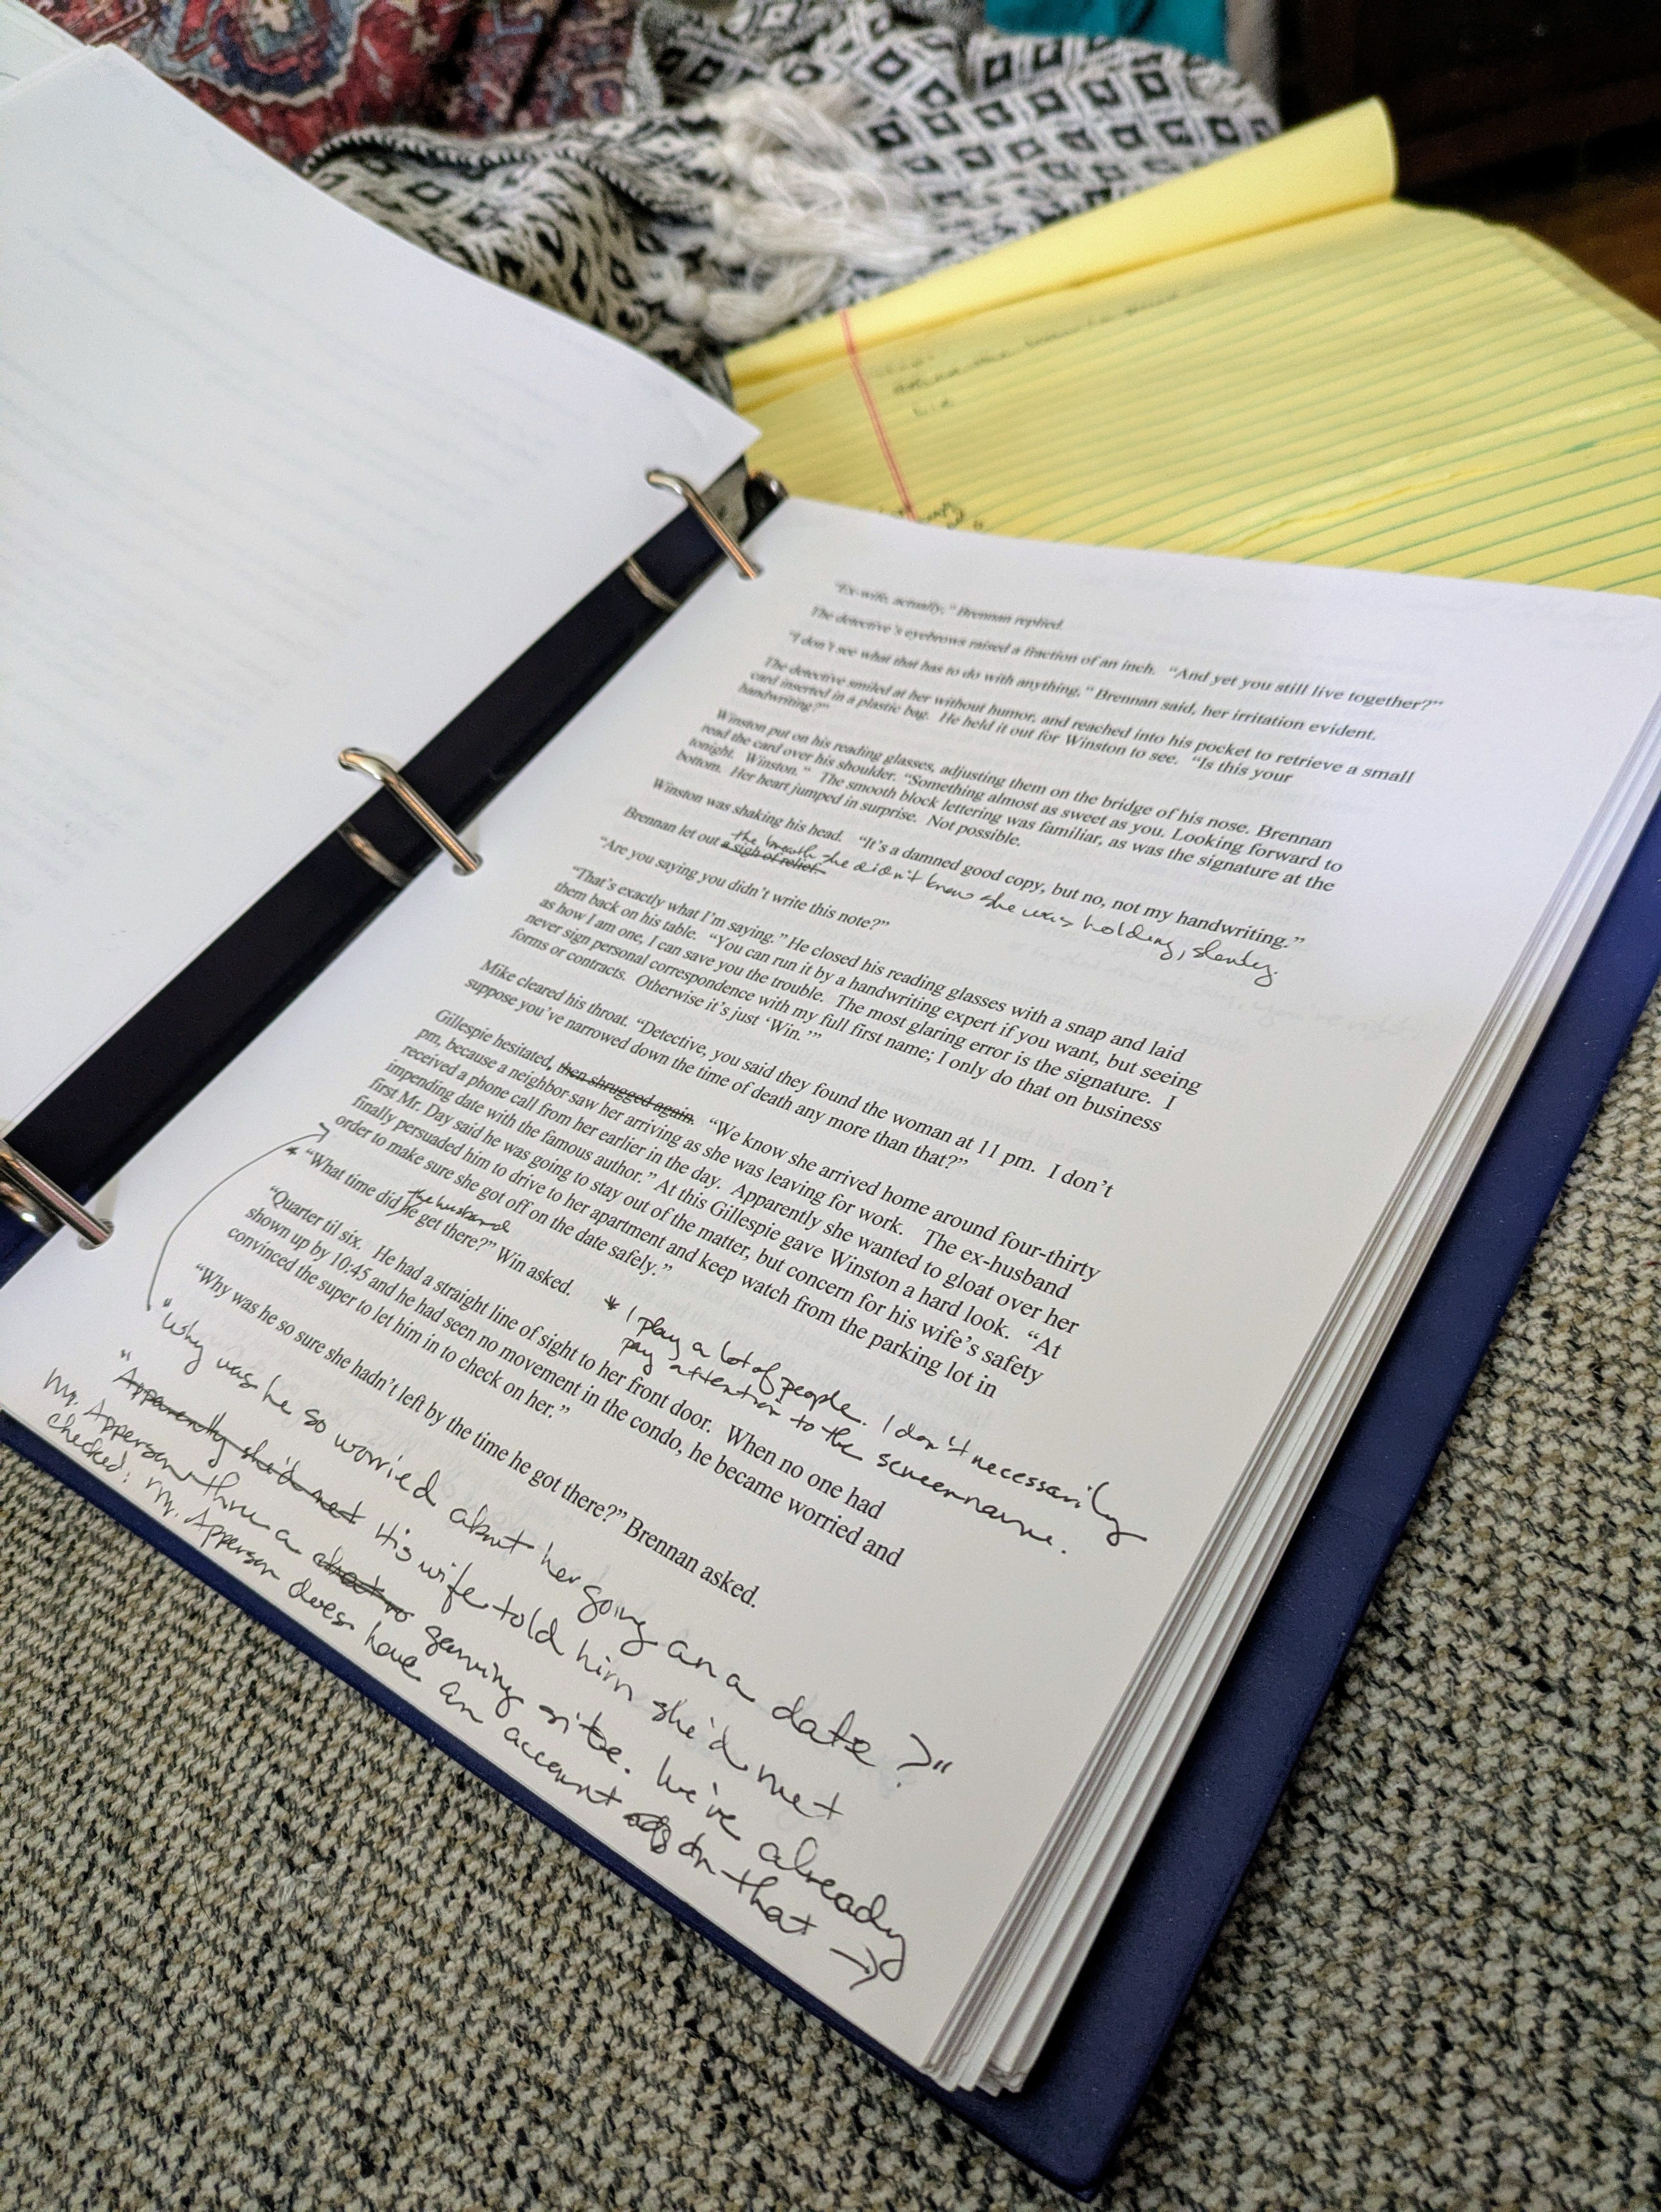 "Ex-wife, actually," Brennan replied.
The detective's eyebrows raised a fraction of an inch. "And yet you still live together?"
"I don't see what that has to do with anything," Brennan said, her irritation evident.
The detective smiled at her without humor, and reached into his pocket to retrieve a small
card inserted in a plastic bag. He held it out for Winston to see. "Is this your
handwriting?"
Winston put on his reading glasses, adjusting them on the bridge of his nose. Brennan
read the card over his shoulder. "Something almost as sweet as you. Looking forward to
tonight. Winston." The smooth block lettering was familiar, as was the signature at the
bottom. Her heart jumped in surprise. Not possible.
Winston was shaking his head. "It's a damned good copy, but no, not my handwriting."
Brennan let out a sigh of relief. the breath she didn't know she was holding, slowly.
"Are you saying you didn't write this note?"
"That's exactly what I'm saying." He closed his reading glasses with a snap and laid
them back on his table. "You can run it by a handwriting expert if you want, but seeing
as how I am one, I can save you the trouble. The most glaring error is the signature. I
never sign personal correspondence with my full first name; I only do that on business
forms or contracts. Otherwise it's just 'Win.'"
Mike cleared his throat. "Detective, you said they found the woman at 11 pm. I don't
suppose you've narrowed down the time of death any more than that?"
Gillespie hesitated, then shrugged again. "We know she arrived home around four-thirty
pm, because a neighbor saw her arriving as she was leaving for work. The ex-husband
received a phone call from her earlier in the day. Apparently she wanted to gloat over her
impending date with the famous author." At this Gillespie gave Winston a hard look. "At
first Mr. Day said he was going to stay out of the matter, but concern for his wife's safety
finally persuaded him to drive to her apartment and keep watch from the parking lot in
order to make sure she got off on the date safely."
* "What time did he the husband get there?" Win asked.
* I play a lot of people. I don't necessarily
pay attention to the screenname.
"Quarter til six. He had a straight line of sight to her front door. When no one had
shown up by 10:45 and he had seen no movement in the condo, he became worried and
convinced the super to let him in to check on her."
"Why was he so sure she hadn't left by the time he got there?" Brennan asked.
"Why was he so worried about her going on a date?"
"Apparently she'd met His wife told him she'd met
Mr. Apperson thru a gaming site. We've already
checked; Mr. Apperson does have an account on that →